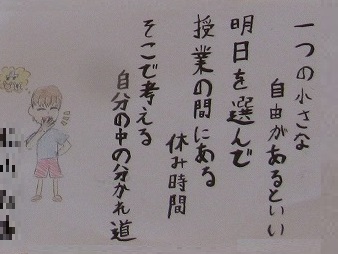 一つの小さな
自由があるといい
明日を選んで
授業の間にある
休み時間
そこで考える
自分の中の分かれ道